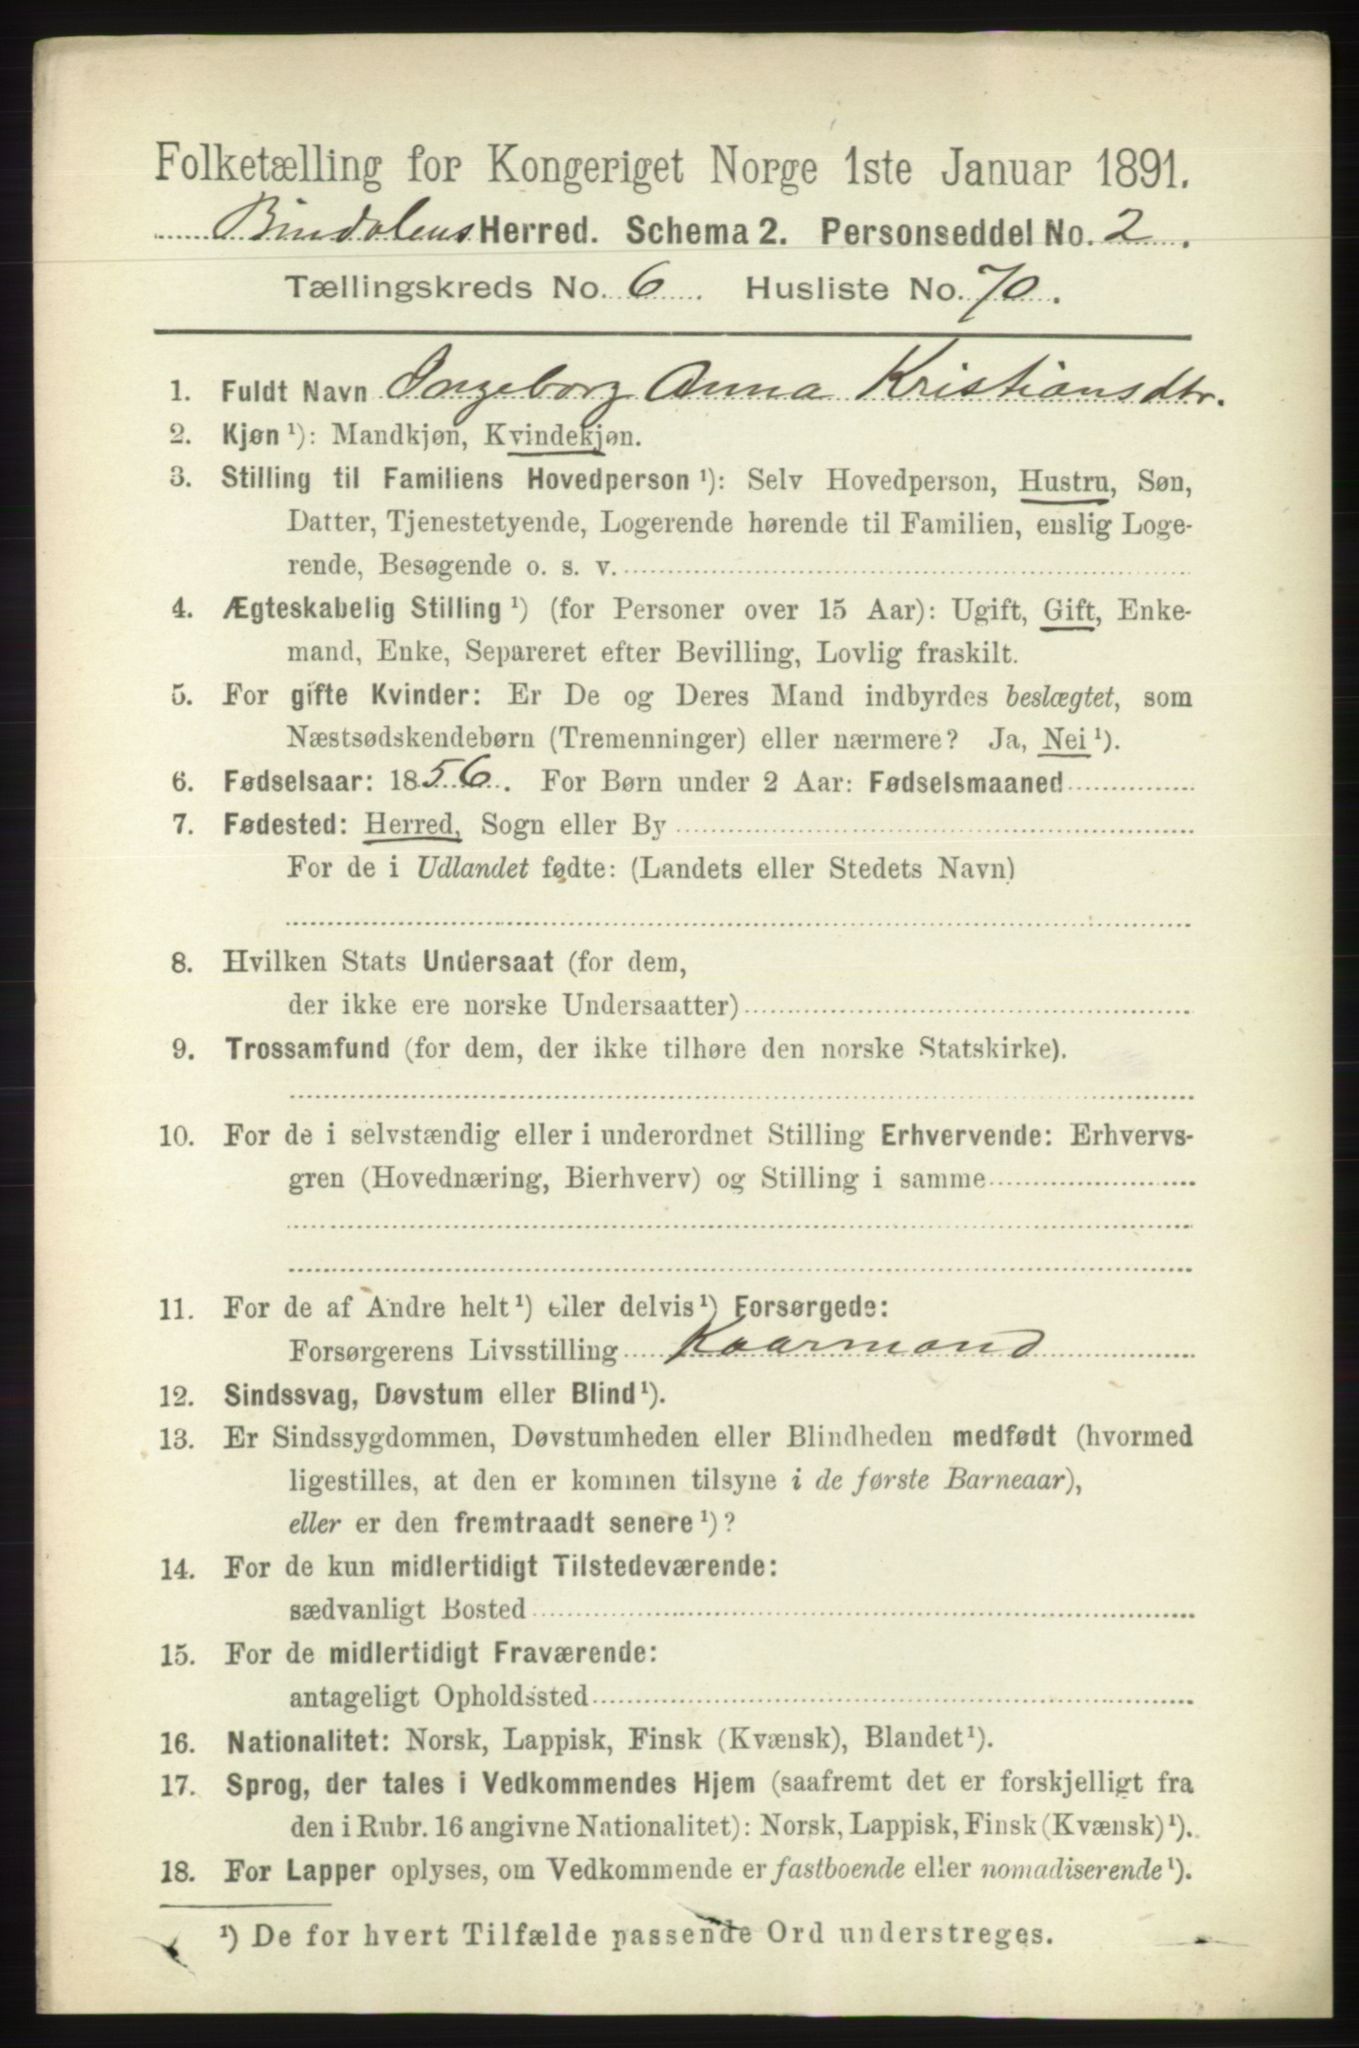 Folketælling for Kongeriget Norge 1ste Januar 1891.
Bindalens Herred. Schema 2. Personseddel No. 2.
Tællingskreds No. 6 Husliste No. 70.
1. Fuldt Navn Ingeborg Anna Kristiansdtr.
2. Kjøn ¹): Mandkjøn, Kvindekjøn.
3. Stilling til Familiens Hovedperson ¹): Selv Hovedperson, Hustru, Søn,
Datter, Tjenestetyende, Logerende hørende til Familien, enslig Loge-
rende, Besøgende o. s. v.
4. Ægteskabelig Stilling ¹) (for Personer over 15 Aar): Ugift, Gift, Enke-
mand, Enke, Separeret efter Bevilling, Lovlig fraskilt.
5. For gifte Kvinder: Er De og Deres Mand indbyrdes beslægtet, som
Næstsødskendebørn (Tremenninger) eller nærmere? Ja, Nei ¹).
6. Fødselsaar: 1856. For Børn under 2 Aar: Fødselsmaaned
7. Fødested: Herred, Sogn eller By
For de i Udlandet fødte: (Landets eller Stedets Navn)
8. Hvilken Stats Undersaat (for dem,
der ikke ere norske Undersaatter)
9. Trossamfund (for dem, der ikke tilhøre den norske Statskirke).
10. For de i selvstændig eller i underordnet Stilling Erhvervende: Erhvervs-
gren (Hovednæring, Bierhverv) og Stilling i samme
11. For de af Andre helt ¹) eller delvis ¹) Forsørgede:
Forsørgerens Livsstilling Kaarmand
12. Sindssvag, Døvstum eller Blind ¹).
13. Er Sindssygdommen, Døvstumheden eller Blindheden medfødt (hvormed
ligestilles, at den er kommen tilsyne i de første Barneaar),
eller er den fremtraadt senere ¹)?
14. For de kun midlertidigt Tilstedeværende:
sædvanligt Bosted
15. For de midlertidigt Fraværende:
antageligt Opholdssted
16. Nationalitet: Norsk, Lappisk, Finsk (Kvænsk), Blandet ¹).
17. Sprog, der tales i Vedkommendes Hjem (saafremt det er forskjelligt fra
den i Rubr. 16 angivne Nationalitet): Norsk, Lappisk, Finsk (Kvænsk) ¹).
18. For Lapper oplyses, om Vedkommende er fastboende eller nomadiserende ¹).
¹) De for hvert Tilfælde passende Ord understreges.